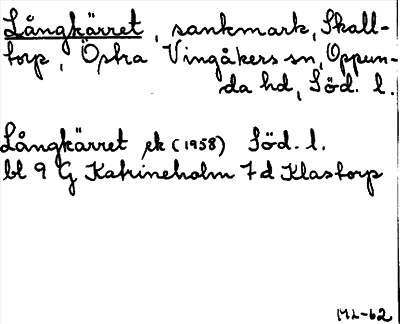 Långkärret, sankmark, Skall-
torp, Östra Vingåkers sn, Oppun-
da hd, Söd. l.
Långkärret ek (1958) Söd. l.
bl 9 G Katrineholm 7 d Klastorp
ML-62